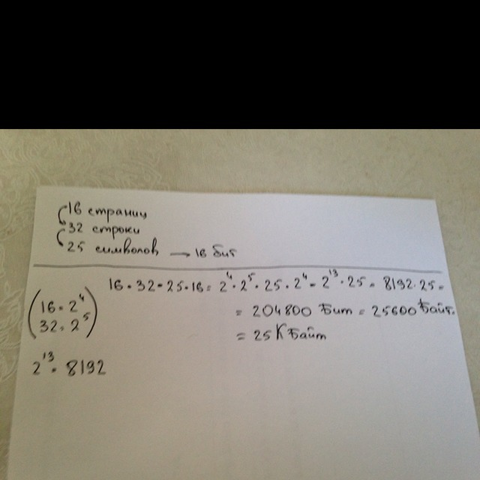 16 страниц
32 строки
25 символов → 16 бит
16 • 32 • 25 • 16 = 2⁴ • 2⁵ • 25 • 2⁴ = 2¹³ • 25 = 8192 • 25 =
= 204800 Бит = 25600 Байт.
= 25 КБайт
(16 = 2⁴
32 = 2⁵)
2¹³ = 8192